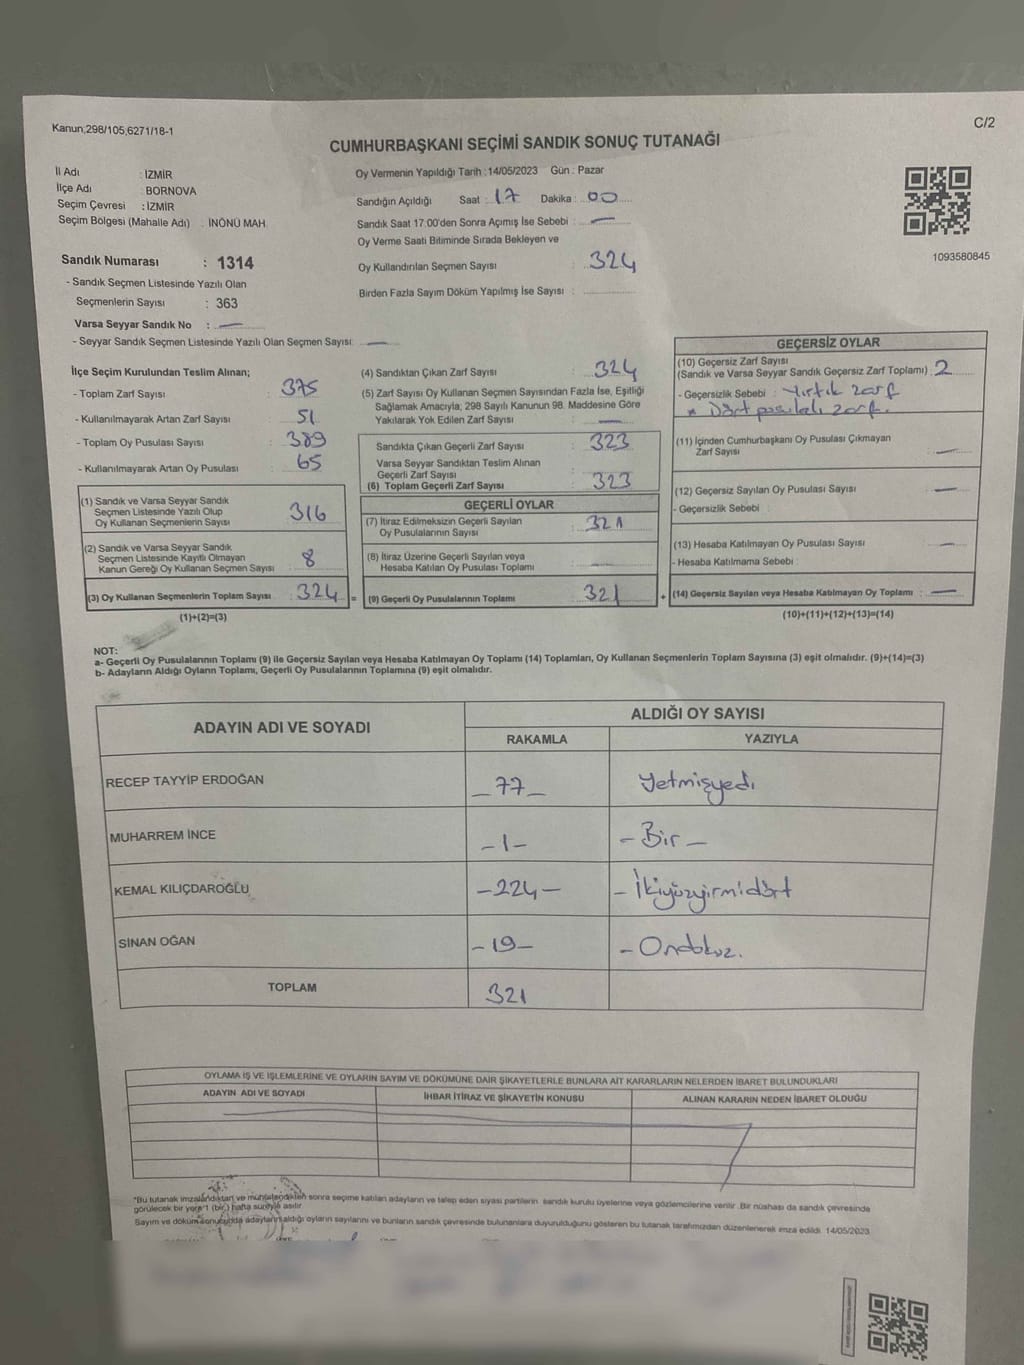 Kanun;298/105,6271/18-1
C/2
CUMHURBAŞKANI SEÇİMİ SANDIK SONUÇ TUTANAĞI
İl Adı : İZMİR
İlçe Adı : BORNOVA
Seçim Çevresi : İZMİR
Seçim Bölgesi (Mahalle Adı) : İNÖNÜ MAH.
Oy Vermenin Yapıldığı Tarih : 14/05/2023 Gün : Pazar
Sandığın Açıldığı Saat : 17 Dakika : 00
Sandık Saat 17.00'den Sonra Açımış İse Sebebi : —
Oy Verme Saati Bitiminde Sırada Bekleyen ve
Oy Kullandırılan Seçmen Sayısı : 324
Birden Fazla Sayım Döküm Yapılmış İse Sayısı :
1093580845
Sandık Numarası : 1314
- Sandık Seçmen Listesinde Yazılı Olan
Seçmenlerin Sayısı : 363
Varsa Seyyar Sandık No : —
- Seyyar Sandık Seçmen Listesinde Yazılı Olan Seçmen Sayısı: —
İlçe Seçim Kurulundan Teslim Alınan;
- Toplam Zarf Sayısı : 375
- Kullanılmayarak Artan Zarf Sayısı : 51
- Toplam Oy Pusulası Sayısı : 389
- Kullanılmayarak Artan Oy Pusulası : 65
(1) Sandık ve Varsa Seyyar Sandık
Seçmen Listesinde Yazılı Olup
Oy Kullanan Seçmenlerin Sayısı : 316
(2) Sandık ve Varsa Seyyar Sandık
Seçmen Listesinde Kayıtlı Olmayan
Kanun Gereği Oy Kullanan Seçmen Sayısı : 8
(3) Oy Kullanan Seçmenlerin Toplam Sayısı : 324 =
(1)+(2)=(3)
(4) Sandıktan Çıkan Zarf Sayısı : 324
(5) Zarf Sayısı Oy Kullanan Seçmen Sayısından Fazla İse, Eşitliği
Sağlamak Amacıyla; 298 Sayılı Kanunun 98. Maddesine Göre
Yakılarak Yok Edilen Zarf Sayısı : —
Sandıkta Çıkan Geçerli Zarf Sayısı : 323
Varsa Seyyar Sandıktan Teslim Alınan
Geçerli Zarf Sayısı :
(6) Toplam Geçerli Zarf Sayısı : 323
GEÇERLİ OYLAR
(7) İtiraz Edilmeksizin Geçerli Sayılan
Oy Pusulalarının Sayısı : 321
(8) İtiraz Üzerine Geçerli Sayılan veya
Hesaba Katılan Oy Pusulası Toplamı : —
(9) Geçerli Oy Pusulalarının Toplamı : 321 +
GEÇERSİZ OYLAR
(10) Geçersiz Zarf Sayısı
(Sandık ve Varsa Seyyar Sandık Geçersiz Zarf Toplamı) : 2
- Geçersizlik Sebebi : Yırtık zarf
* Dört pusulalı zarf.
(11) İçinden Cumhurbaşkanı Oy Pusulası Çıkmayan
Zarf Sayısı : —
(12) Geçersiz Sayılan Oy Pusulası Sayısı : —
- Geçersizlik Sebebi :
(13) Hesaba Katılmayan Oy Pusulası Sayısı : —
- Hesaba Katılmama Sebebi :
(14) Geçersiz Sayılan veya Hesaba Katılmayan Oy Toplamı : —
(10)+(11)+(12)+(13)=(14)
NOT:
a- Geçerli Oy Pusulalarının Toplamı (9) ile Geçersiz Sayılan veya Hesaba Katılmayan Oy Toplamı (14) Toplamları, Oy Kullanan Seçmenlerin Toplam Sayısına (3) eşit olmalıdır. (9)+(14)=(3)
b- Adayların Aldığı Oyların Toplamı, Geçerli Oy Pusulalarının Toplamına (9) eşit olmalıdır.
ADAYIN ADI VE SOYADI
ALDIĞI OY SAYISI
RAKAMLA YAZIYLA
RECEP TAYYİP ERDOĞAN –77– Yetmişyedi
MUHARREM İNCE –1– –Bir–
KEMAL KILIÇDAROĞLU –224– –İkiyüzyirmidört
SİNAN OĞAN –19– –Ondokuz.
TOPLAM 321
OYLAMA İŞ VE İŞLEMLERİNE VE OYLARIN SAYIM VE DÖKÜMÜNE DAİR ŞİKAYETLERLE BUNLARA AİT KARARLARIN NELERDEN İBARET BULUNDUKLARI
ADAYIN ADI VE SOYADI İHBAR İTİRAZ VE ŞİKAYETİN KONUSU ALINAN KARARIN NEDEN İBARET OLDUĞU
*Bu tutanak imzalandıktan ve mühürlendikten sonra seçime katılan adayların ve talep eden siyasi partilerin sandık kurulu üyelerine veya gözlemcilerine verilir. Bir nüshası da sandık çevresinde
görülecek bir yere 1 (bir) hafta süreyle asılır.
Sayım ve döküm sonucunda adayların aldığı oyların sayılarını ve bunların sandık çevresinde bulunanlara duyurulduğunu gösteren bu tutanak tarafımızdan düzenlenerek imza edildi. 14/05/2023